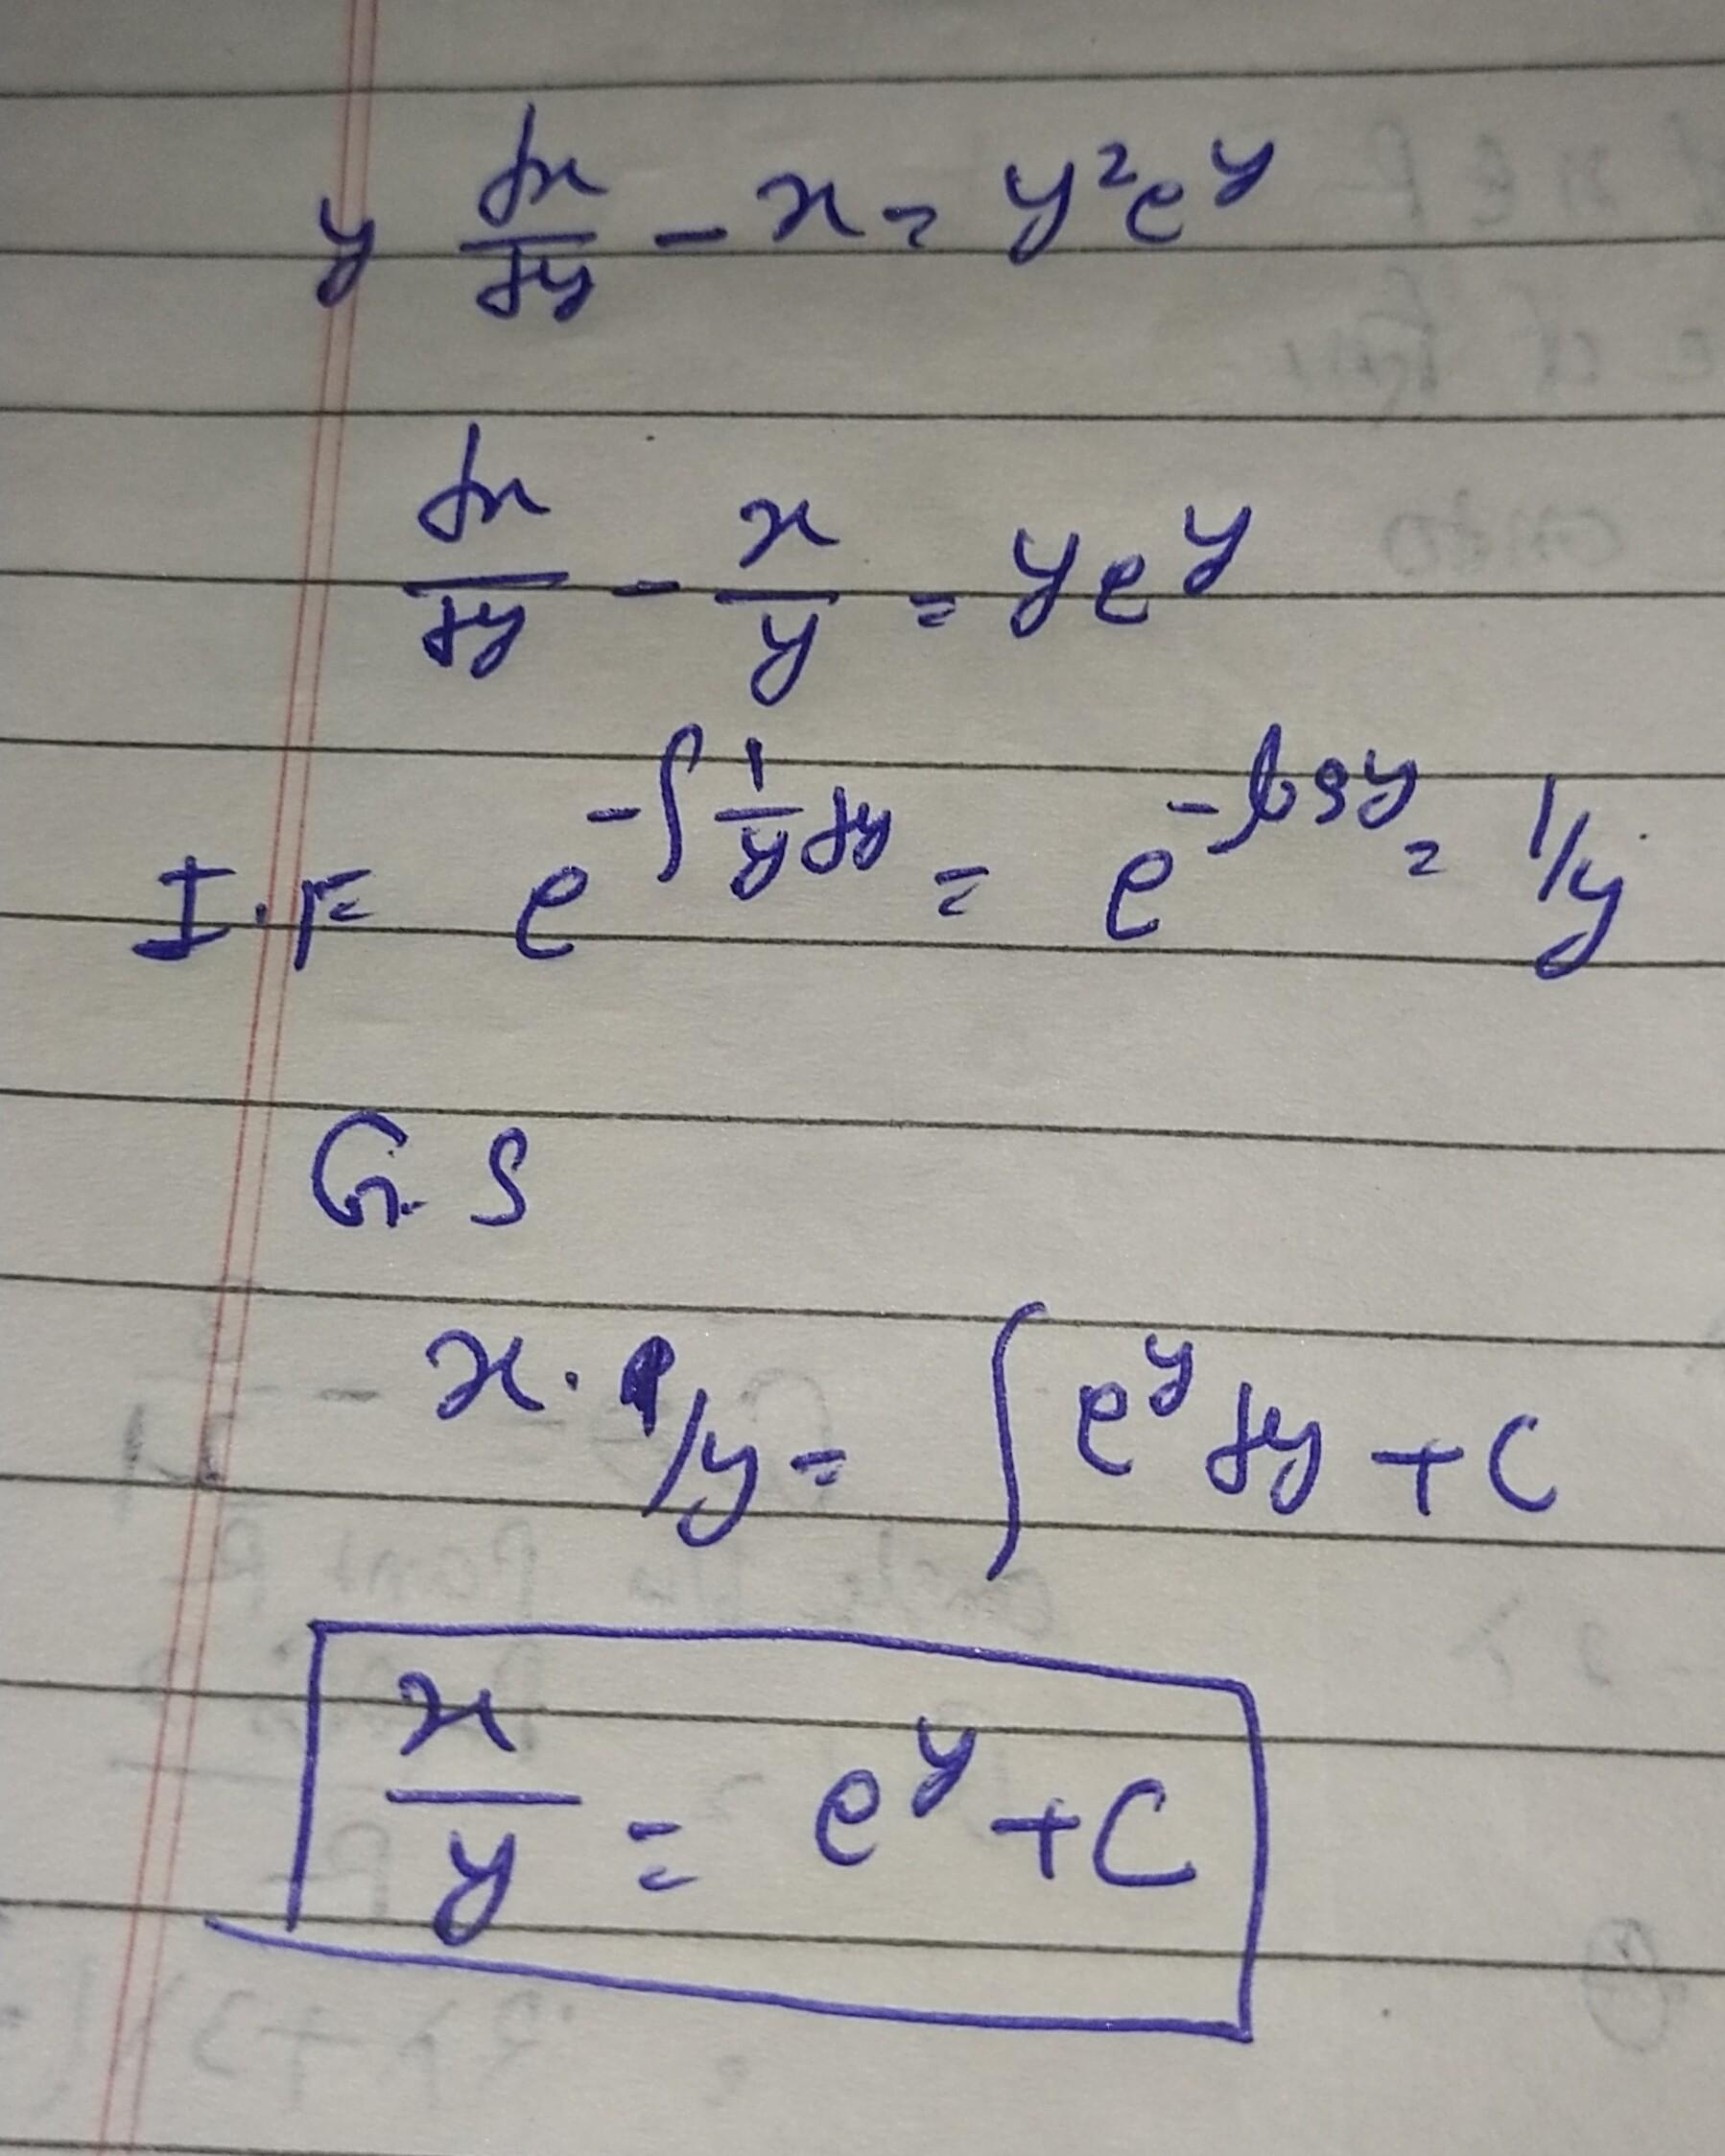 y dx/dy - x = y²e^y
dx/dy - x/y = ye^y
I.F = e^(-∫ 1/y dy) = e^(-log y) = 1/y
G.S
x · 1/y = ∫ e^y dy + C
x/y = e^y + C